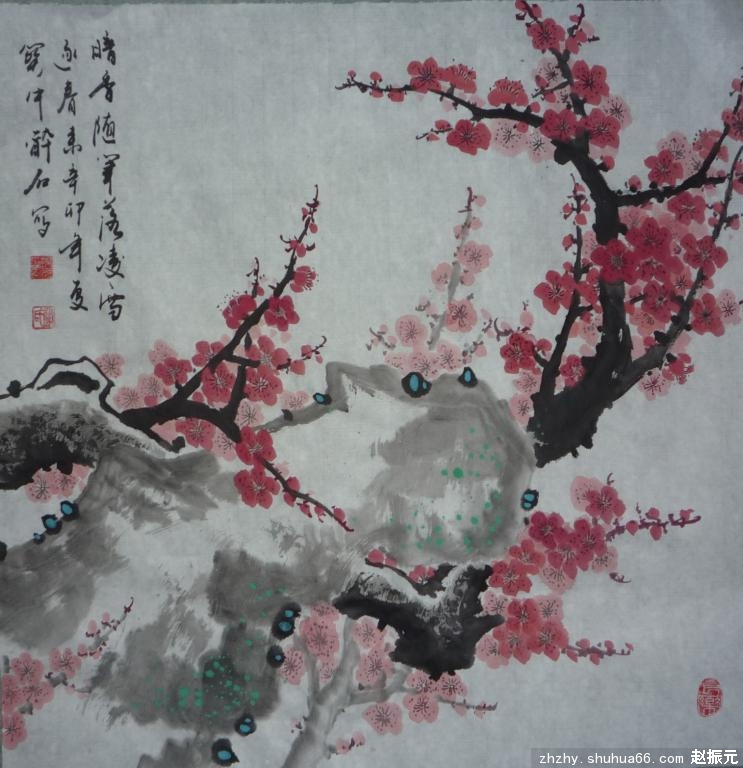 暗香随筆落凌雪
逐春来辛卯年夏
關中醉石写
zhzhy.shuhua66.com 赵振元